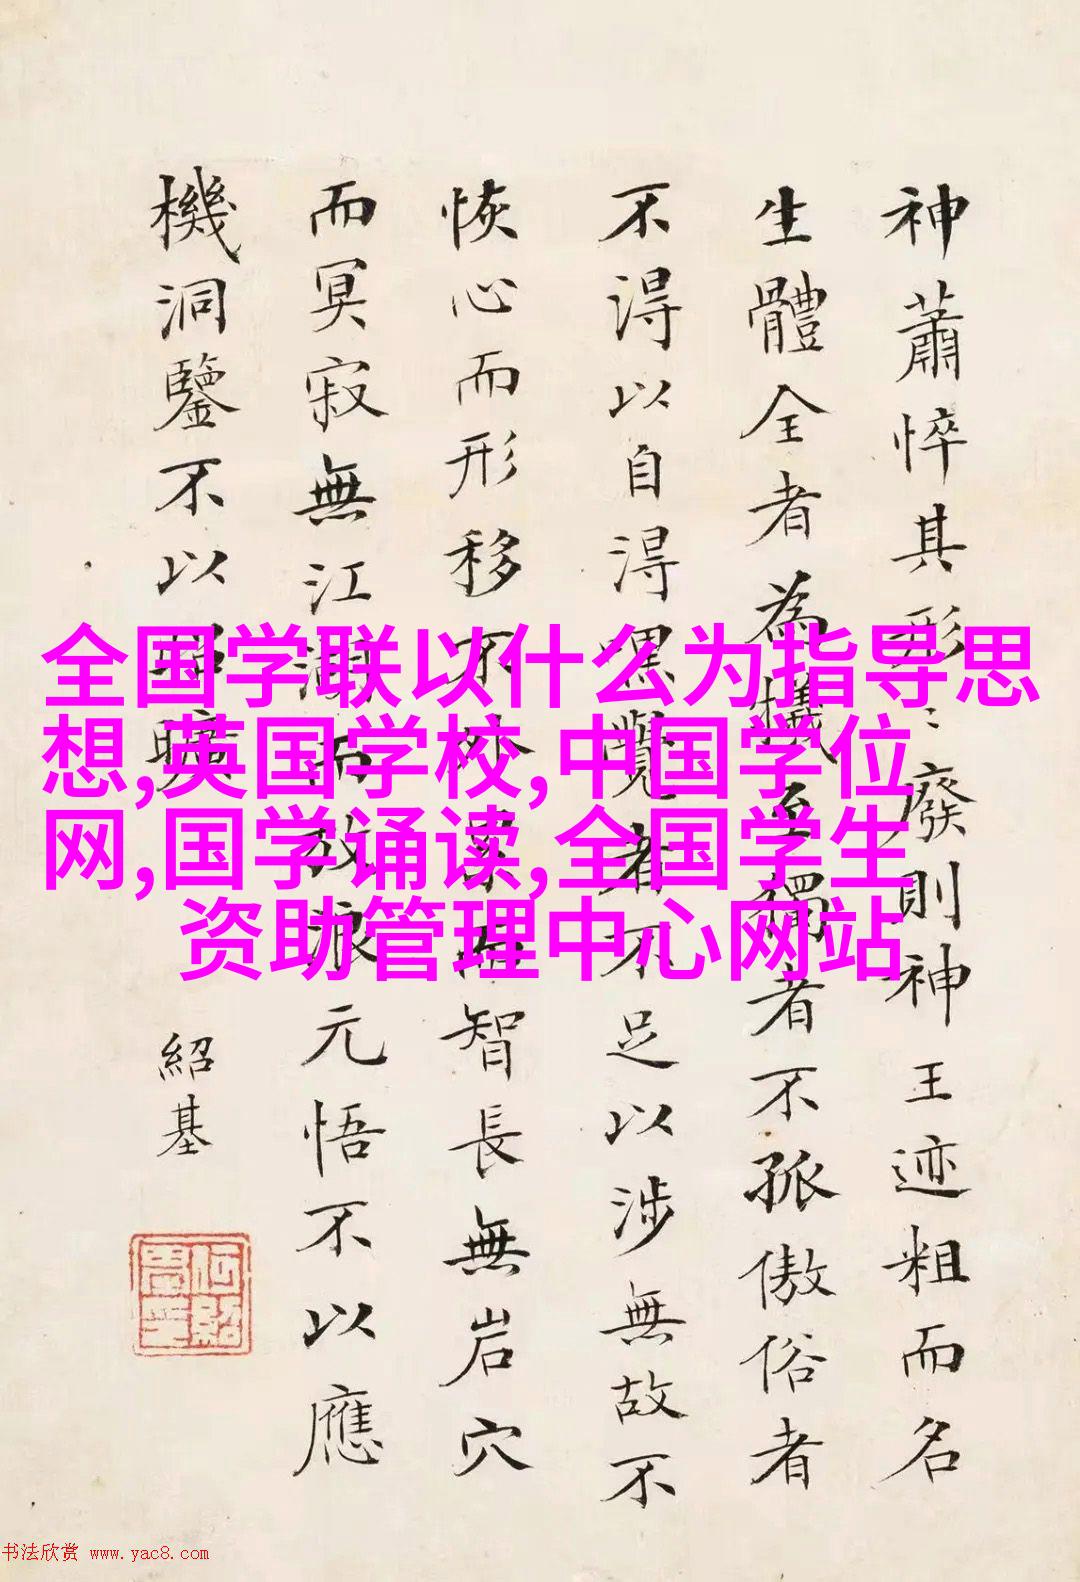 神蕭悴其形〻廢則神王迹粗而名
生體全者為犧至獨者不孤傲俗者
不得以自得嘿覺者不足以涉無故不
恢心而形移不外累而智長無岩穴
而冥寂無江湖而放浪元悟不以應
機洞鑒不以昭曠
紹基
何紹基印
全国学联以什么为指导思
想,英国学校,中国学位
网,国学诵读,全国学生
资助管理中心网站
书法欣赏 www.yac8.com